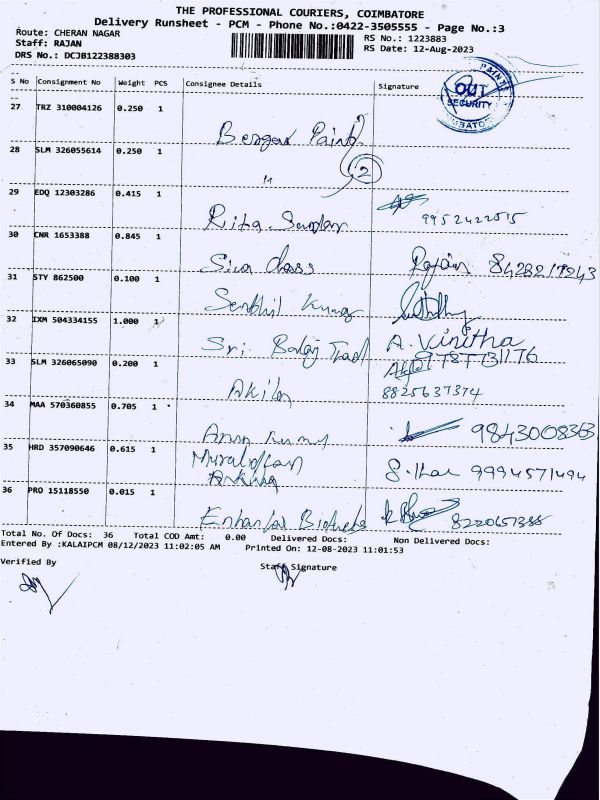 THE PROFESSIONAL COURIERS, COIMBATORE
Delivery Runsheet - PCM - Phone No.:0422-3505555 - Page No.:3
Route: CHERAN NAGAR
Staff: RAJAN
DRS No.: DCJB122388303
RS No.: 1223883
RS Date: 12-Aug-2023
S No Consignment No Weight PCS Consignee Details Signature
PAINTS
OUT
SECURITY
27 TRZ 310004126 0.250 1 Berger Paints
28 SLM 326055614 0.250 1 " 2
29 EDQ 12303286 0.415 1 Rita Sundar 9952422515
30 CNR 1653388 0.845 1 Siva dass Rajan 8428217243
31 STY 862500 0.100 1 Senthil Kumar
32 IXM 504334155 1.000 1 Sri Balaji Trad A. Vinitha
9787731176
33 SLM 326065090 0.200 1 Akila 8825637374
34 MAA 570360855 0.705 1 Arun Kumar 9843008363
35 HRD 357090646 0.615 1 Muralidharan 9994571494
36 PRO 15118550 0.015 1
Total No. Of Docs: 36 Total COD Amt: 0.00 Delivered Docs: Non Delivered Docs:
Entered By :KALAIPCM 08/12/2023 11:02:05 AM Printed On: 12-08-2023 11:01:53
Verified By
Staff Signature